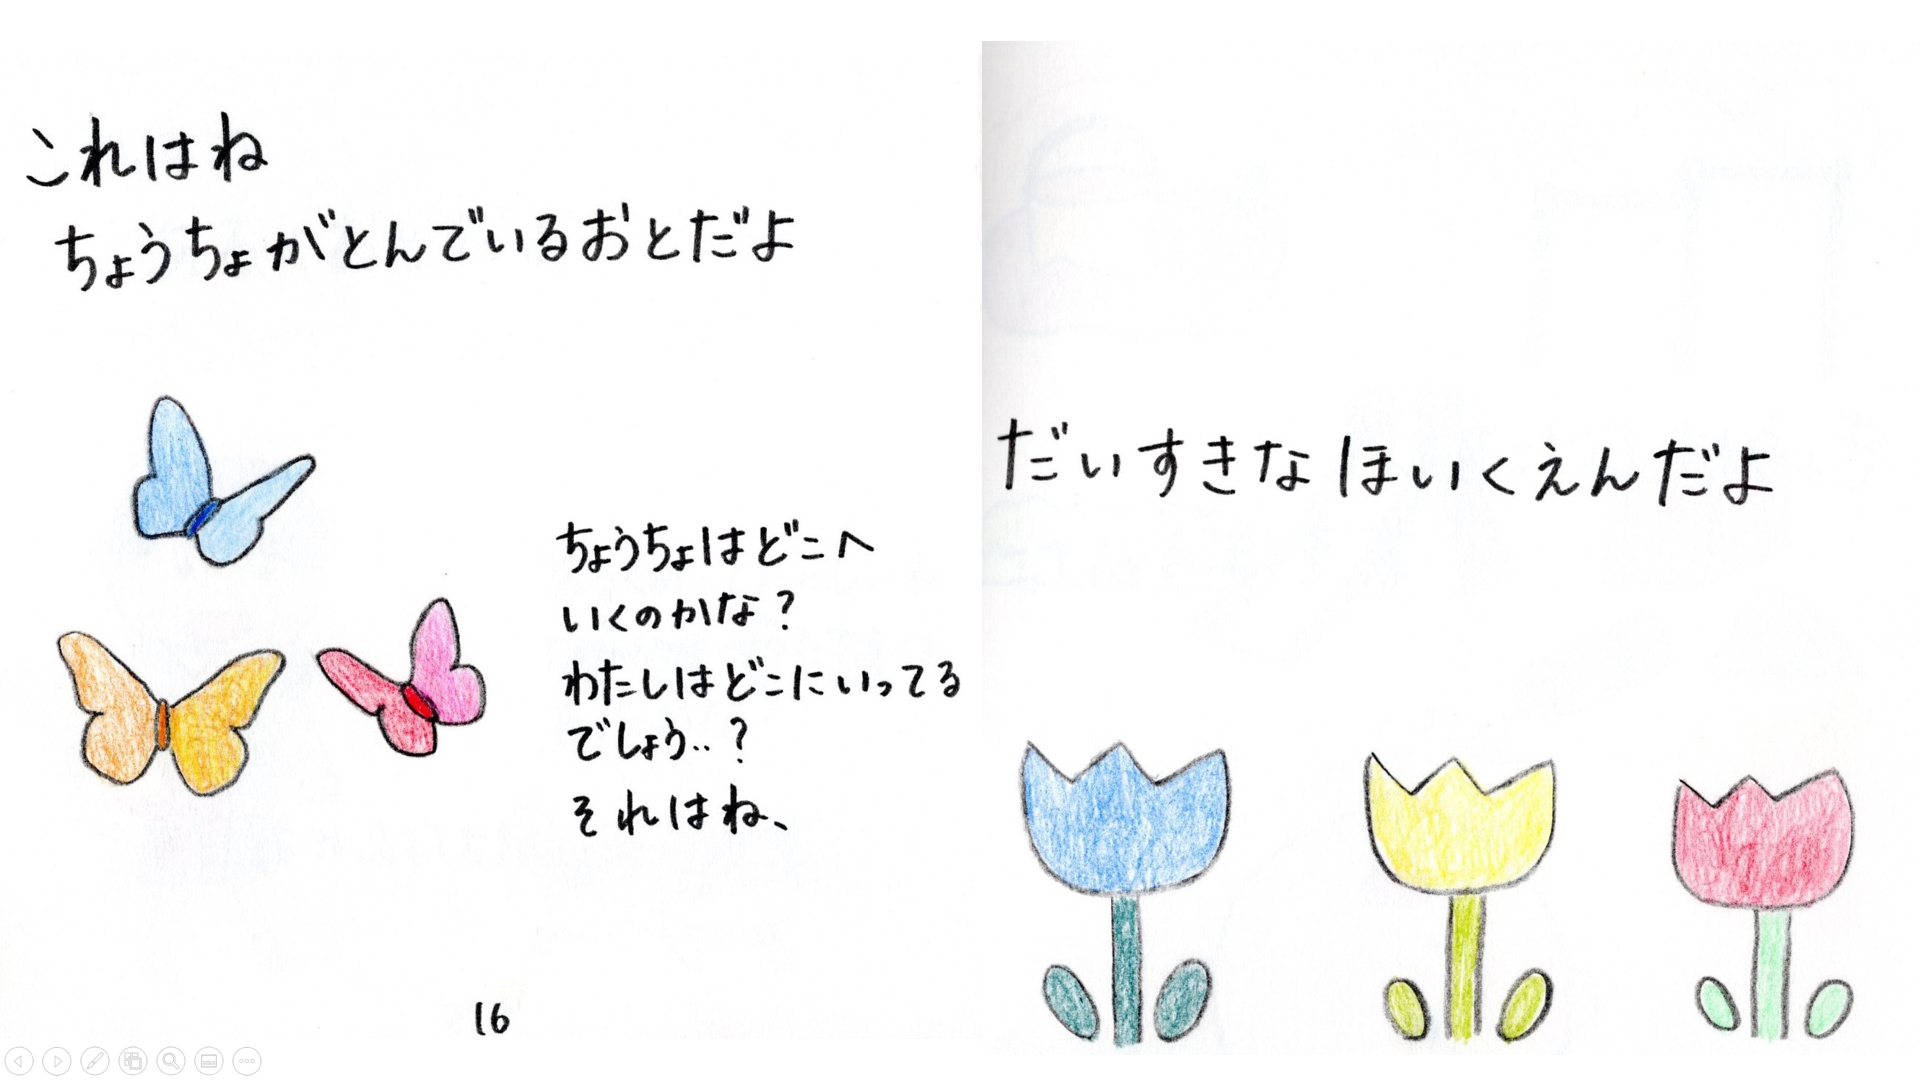 これはね
ちょうちょがとんでいるおとだよ
ちょうちょはどこへ
いくのかな？
わたしはどこにいってる
でしょう‥？
それはね、
16
だいすきなほいくえんだよ